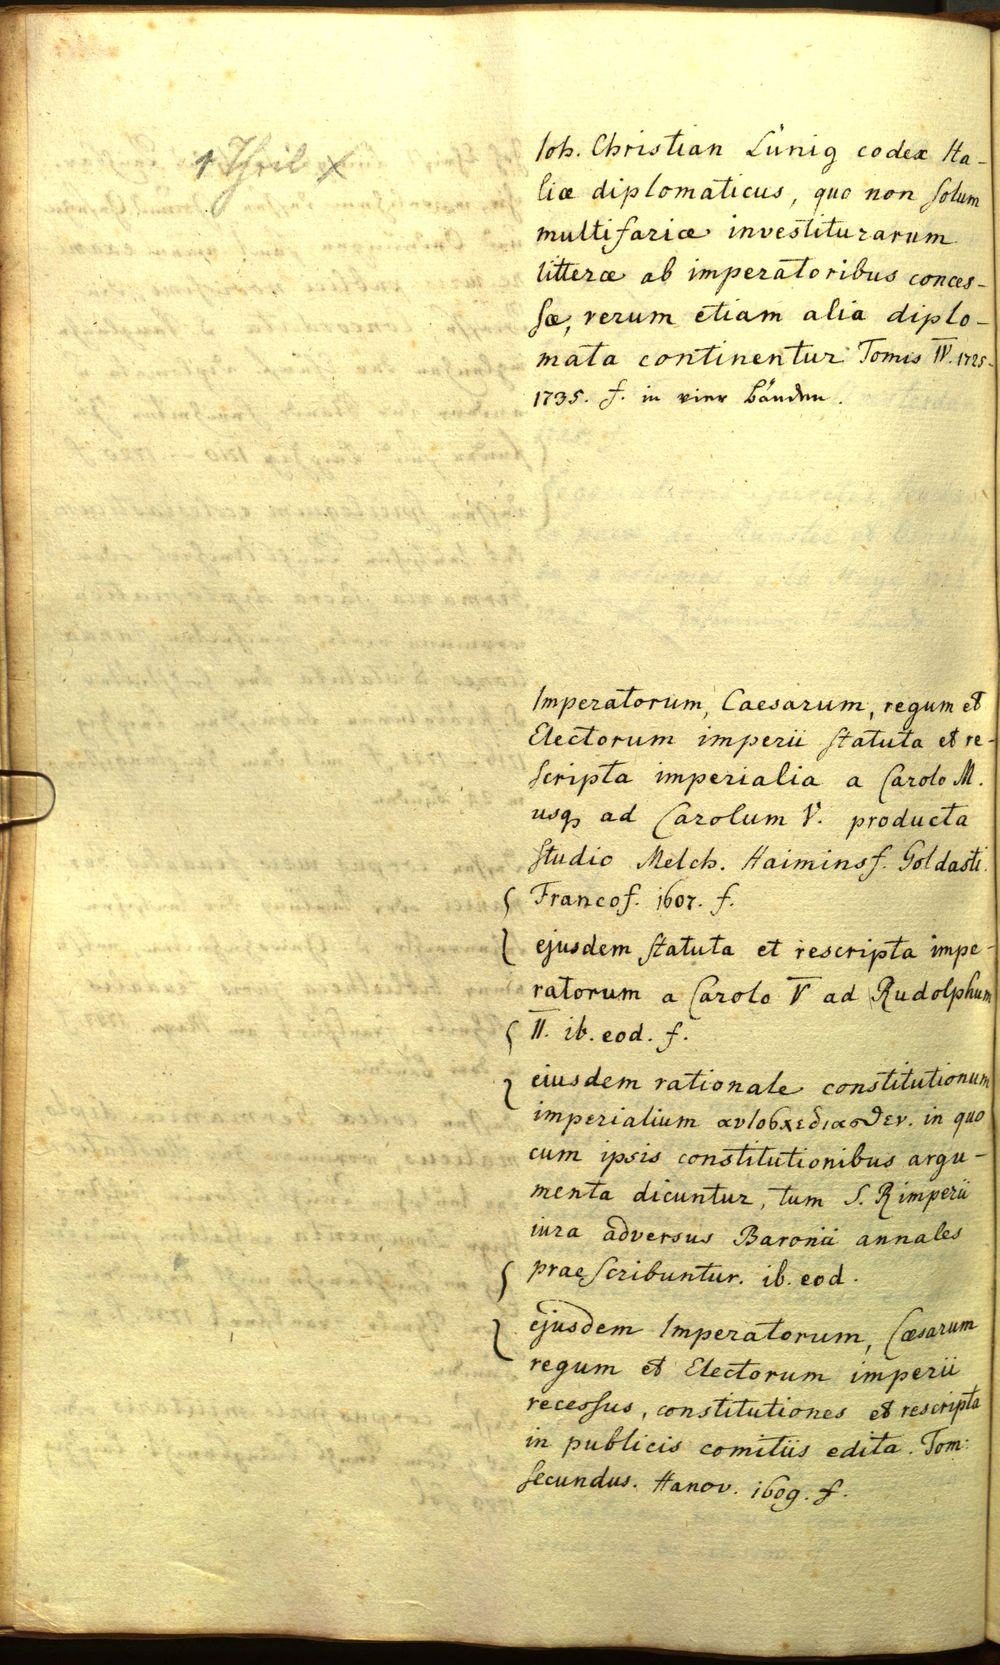 1 Theil X
Ioh. Christian Lünig codex Ita-
liæ diplomaticus, quo non solum
multifariæ investiturarum
litteræ ab imperatoribus conces-
sæ, verum etiam alia diplo-
mata continentur Tomis IV. 1725-
1735. f. in vier Bänden.
Imperatorum, Caesarum, regum et
Electorum imperii statuta et re-
scripta imperialia a Carolo M.
usq ad Carolum V. producta
studio Melch. Haiminsf. Goldasti.
Francof. 1607. f.
ejusdem statuta et rescripta impe-
ratorum a Carolo V ad Rudolphum
II. ib. eod. f.
eiusdem rationale constitutionum
imperialium in quo
cum ipsis constitutionibus argu-
menta dicuntur, tum S. R imperii
iura adversus Baronii annales
praescribuntur. ib. eod.
ejusdem Imperatorum, Cæsarum
regum et Electorum imperii
recessus, constitutiones et rescripta
in publicis comitiis edita. Tom:
secundus. Hanov. 1609. f.